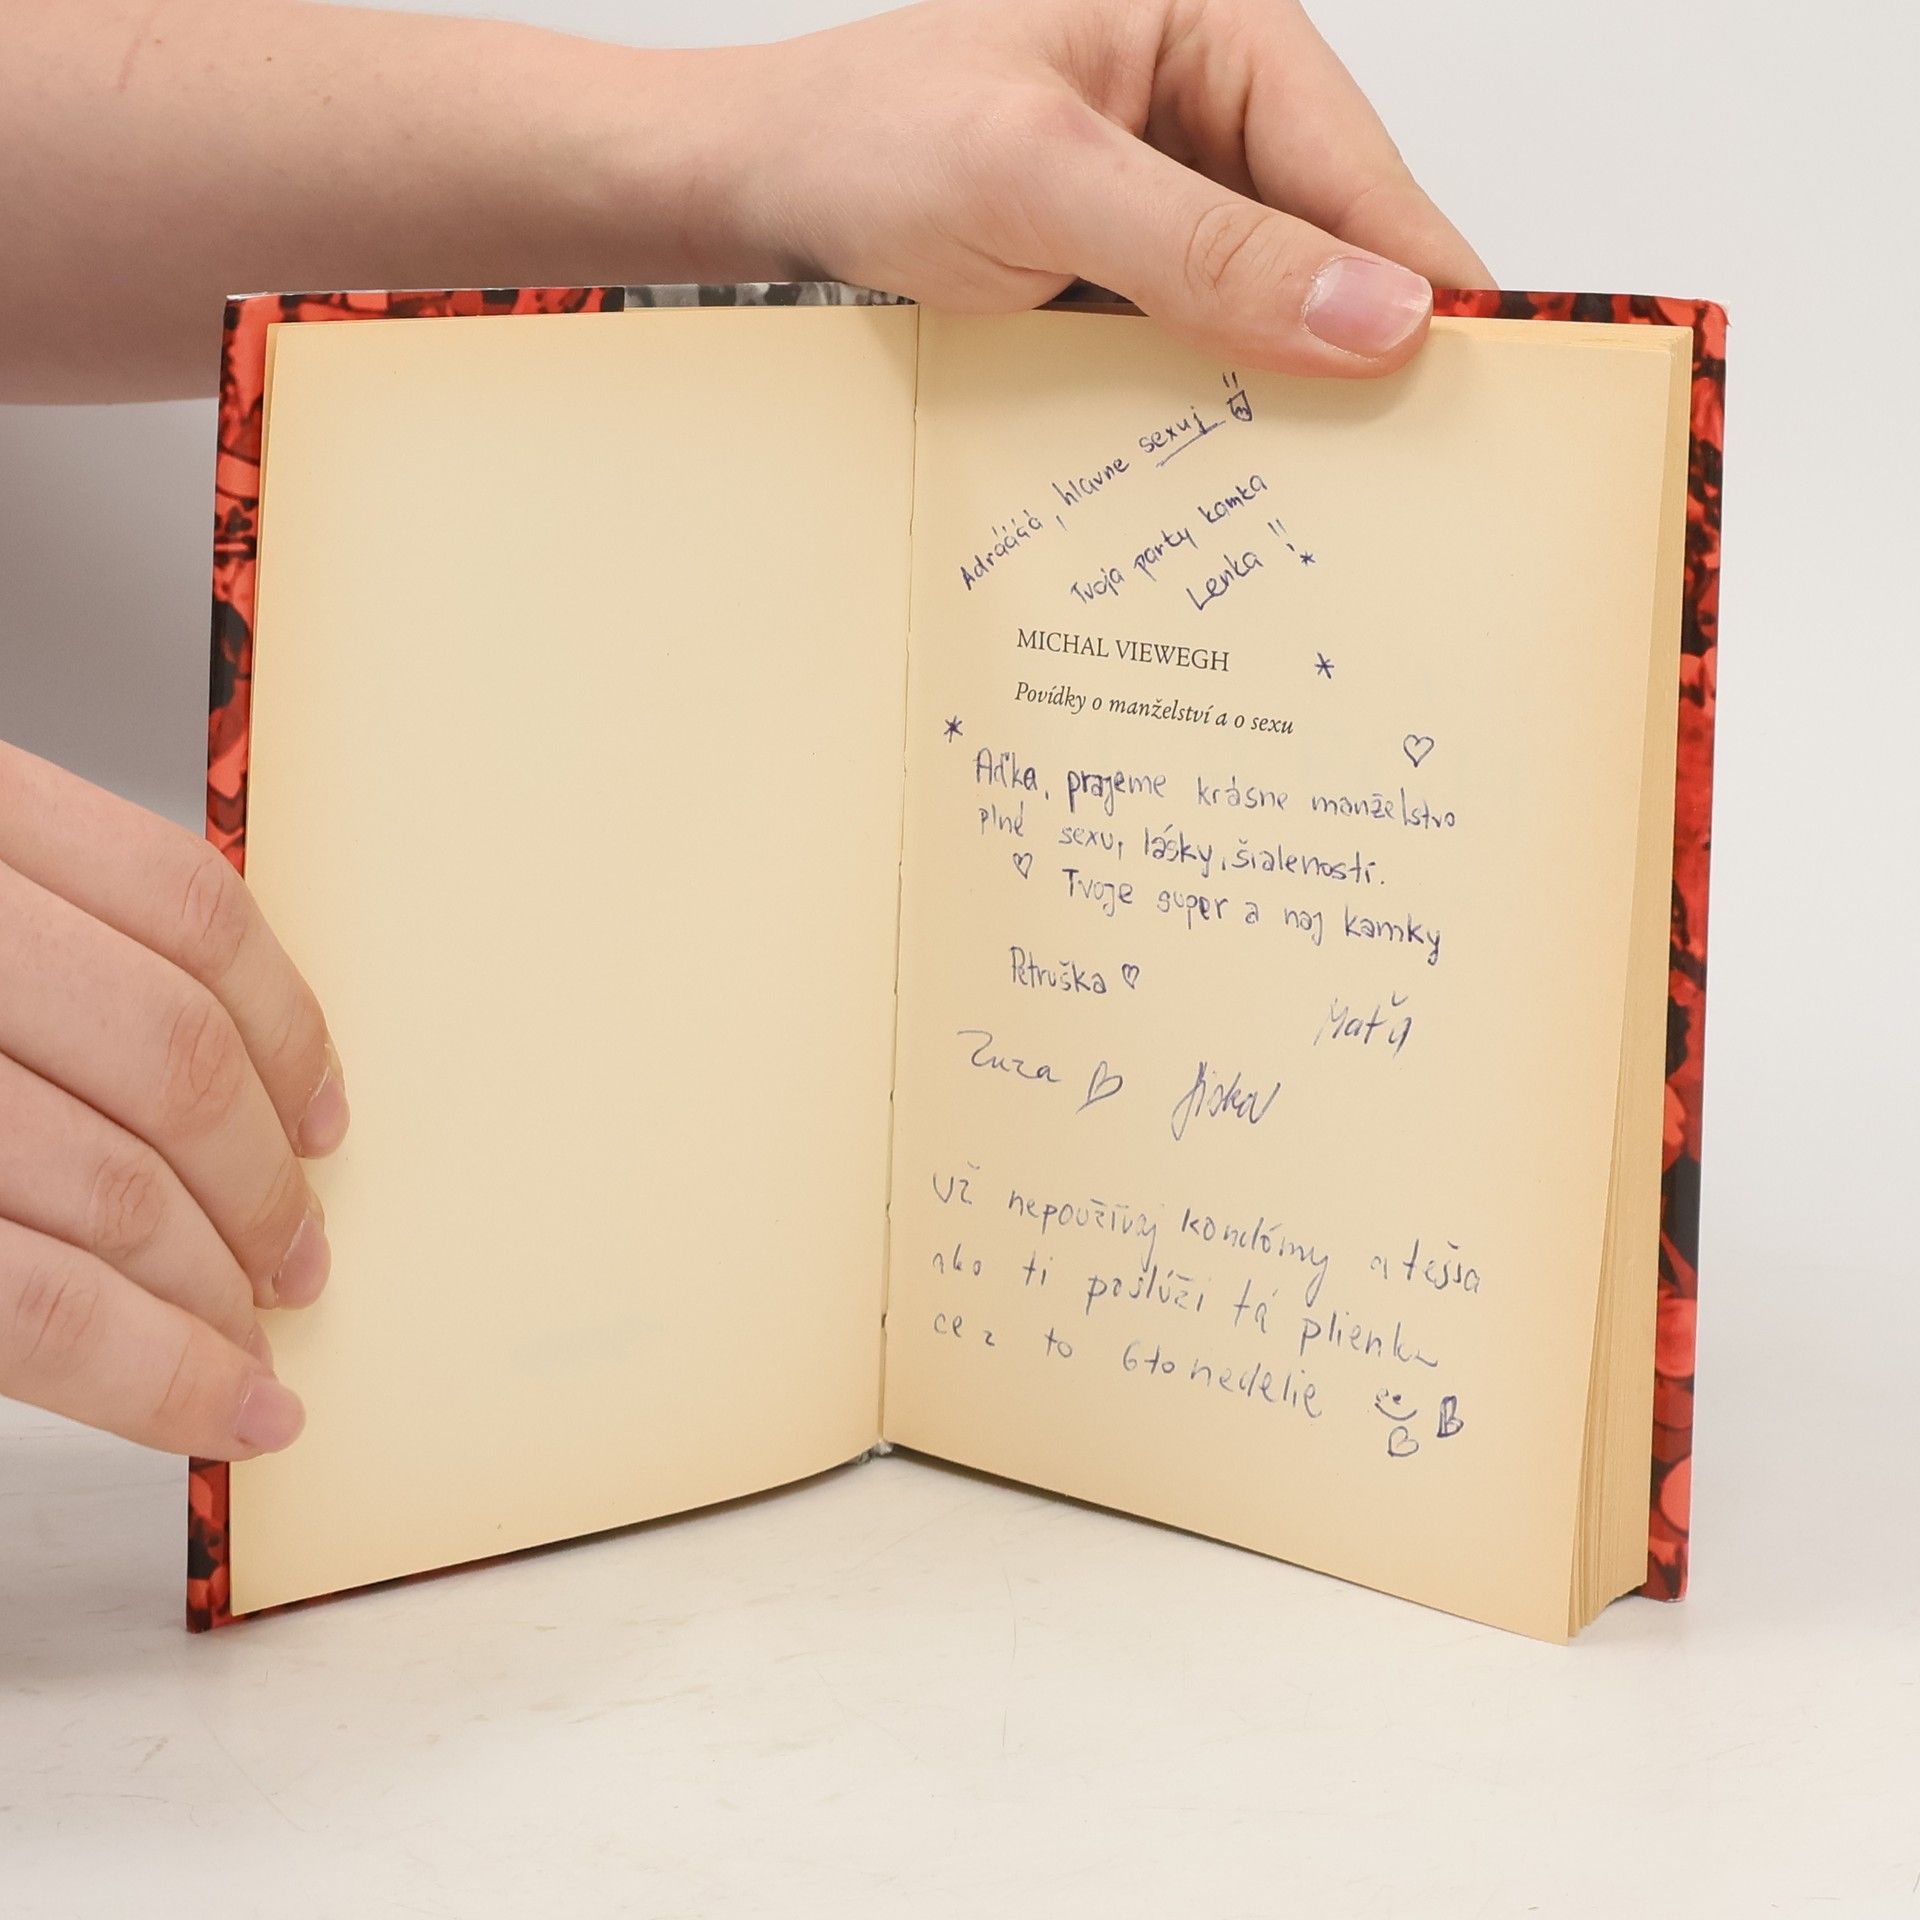 Adráááá, hlavne sexuj
Tvoja party kamka
Lenka !
MICHAL VIEWEGH
Povídky o manželství a o sexu
Aďka, prajeme krásne manželstvo
plné sexu, lásky, šialenosti.
Tvoje super a naj kamky
Petruška
Maťu
Zuza
Už nepoužívaj kondómy a tešsa
ako ti poslúži tá plienka
cez to 6to nedelie